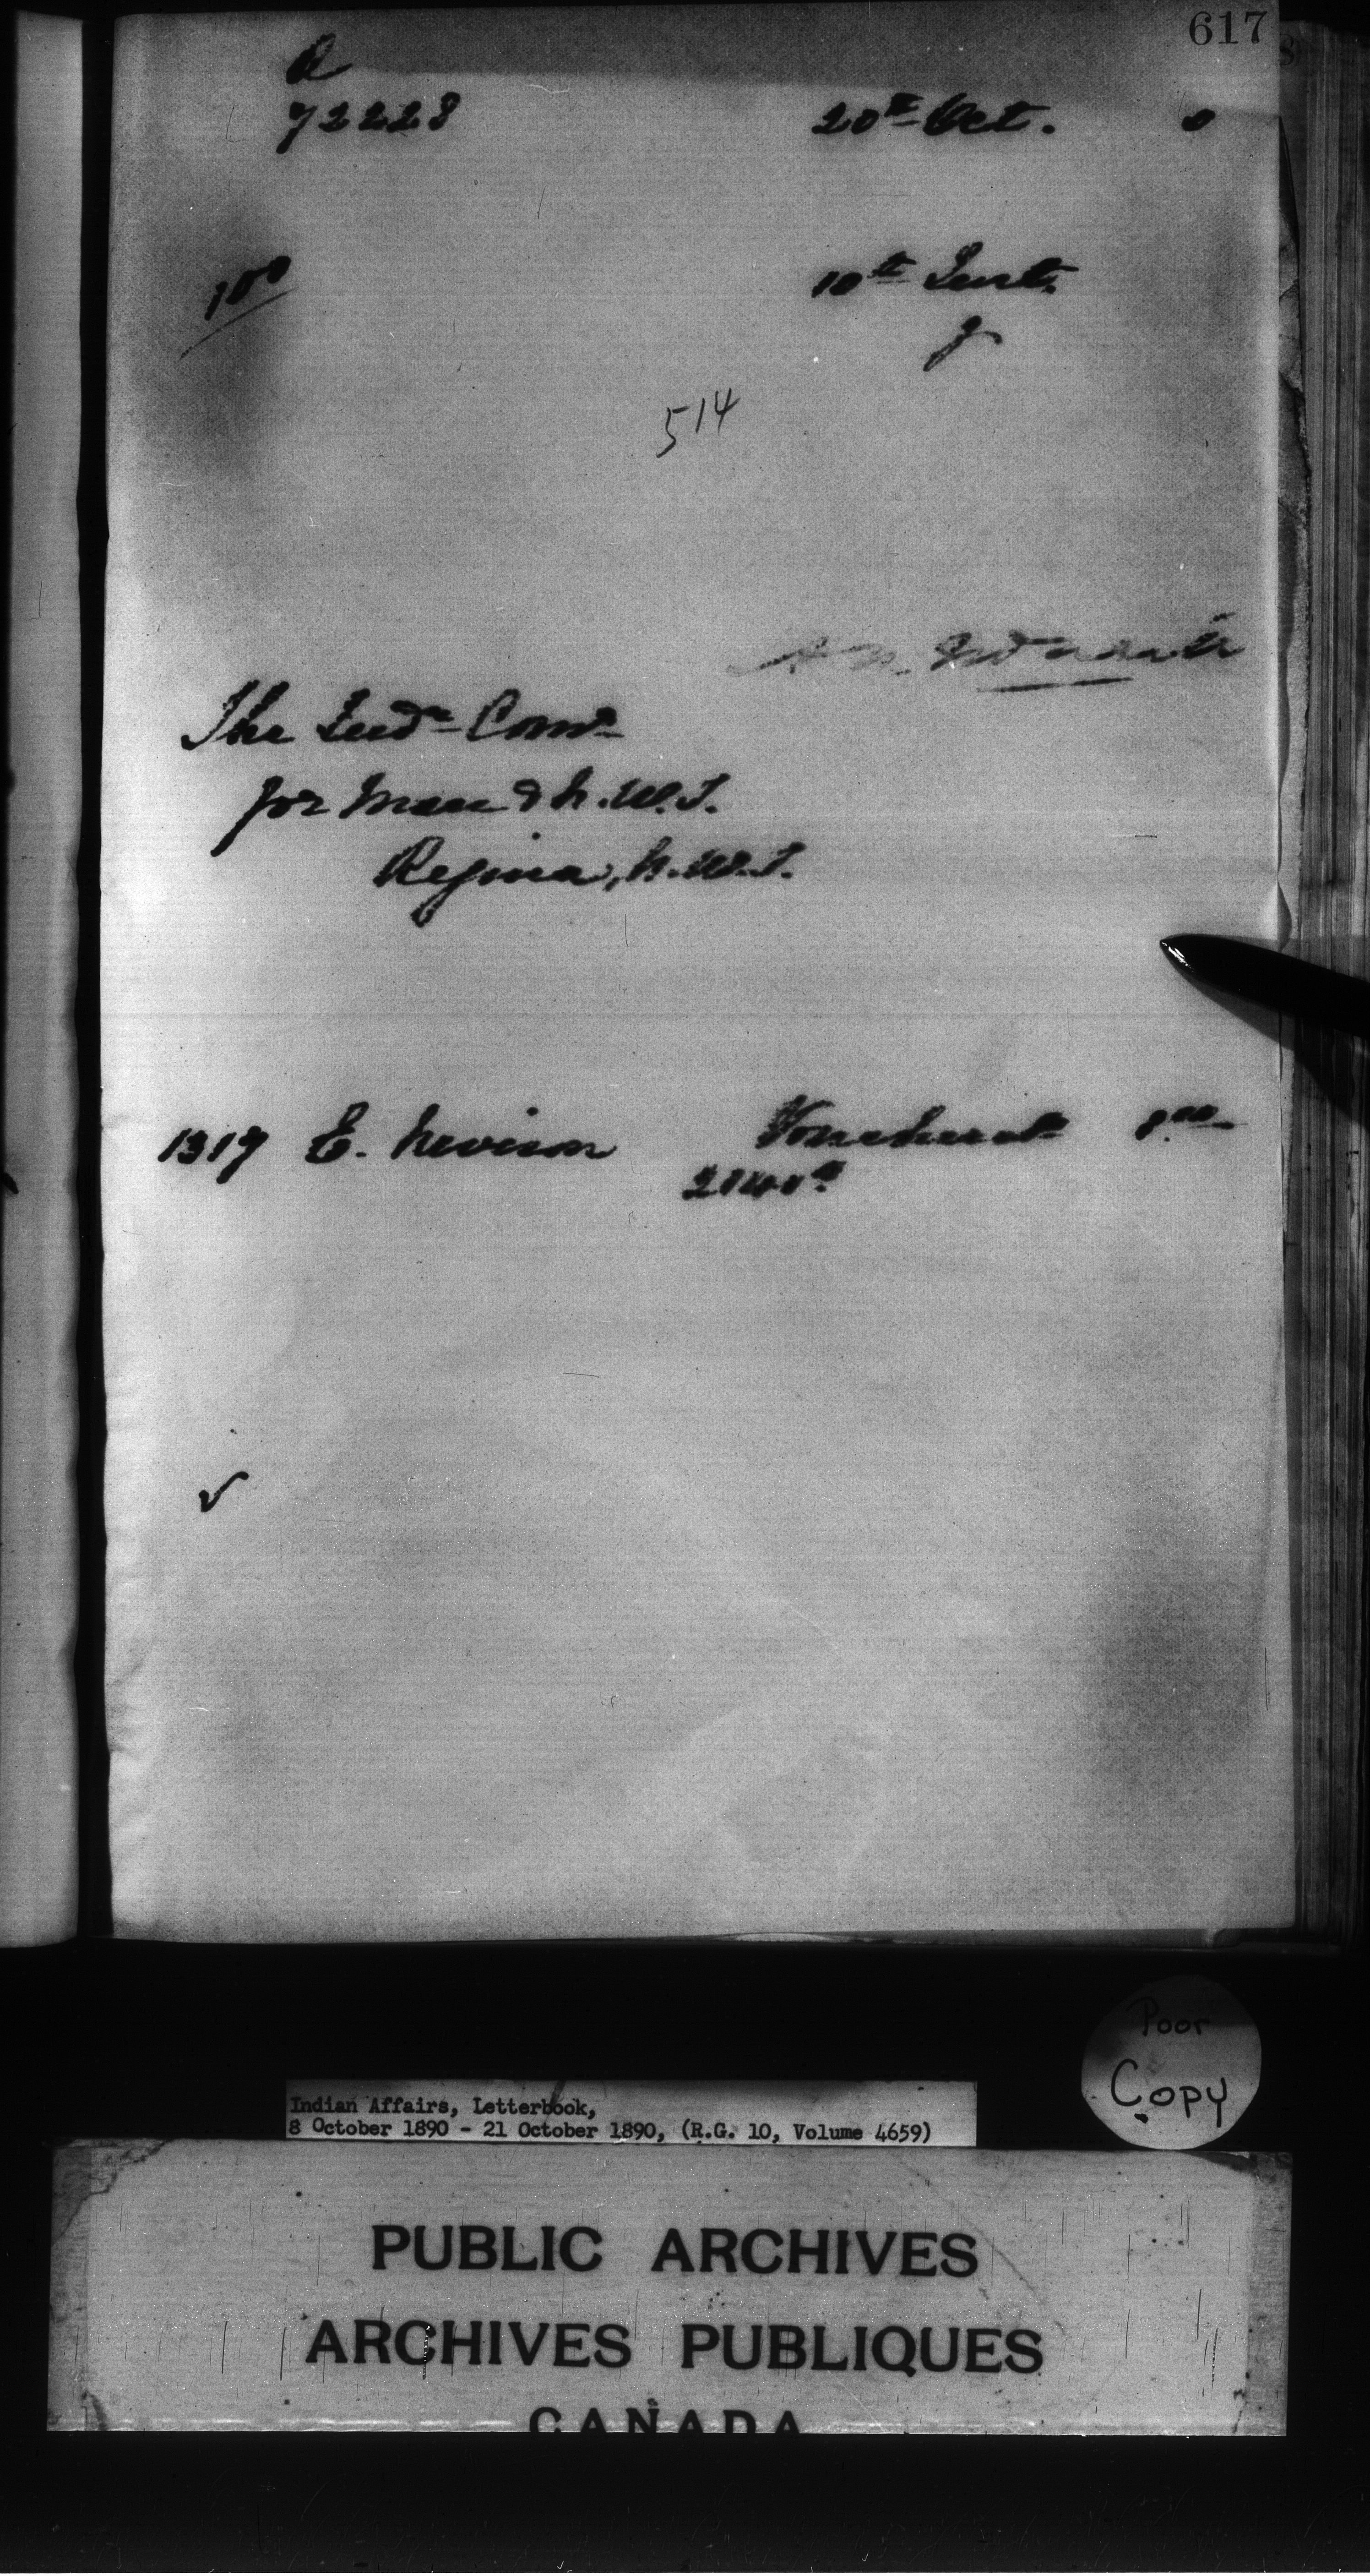 617
72228 20th Oct. 0
100 10th Inst.
514
The Indn Comr
for Man & N.W.T.
Regina, N.W.T.
1317 E. Nevison
Poor
Copy
Indian Affairs, Letterbook,
8 October 1890 - 21 October 1890, (R.G. 10, Volume 4659)
PUBLIC ARCHIVES
ARCHIVES PUBLIQUES
CANADA